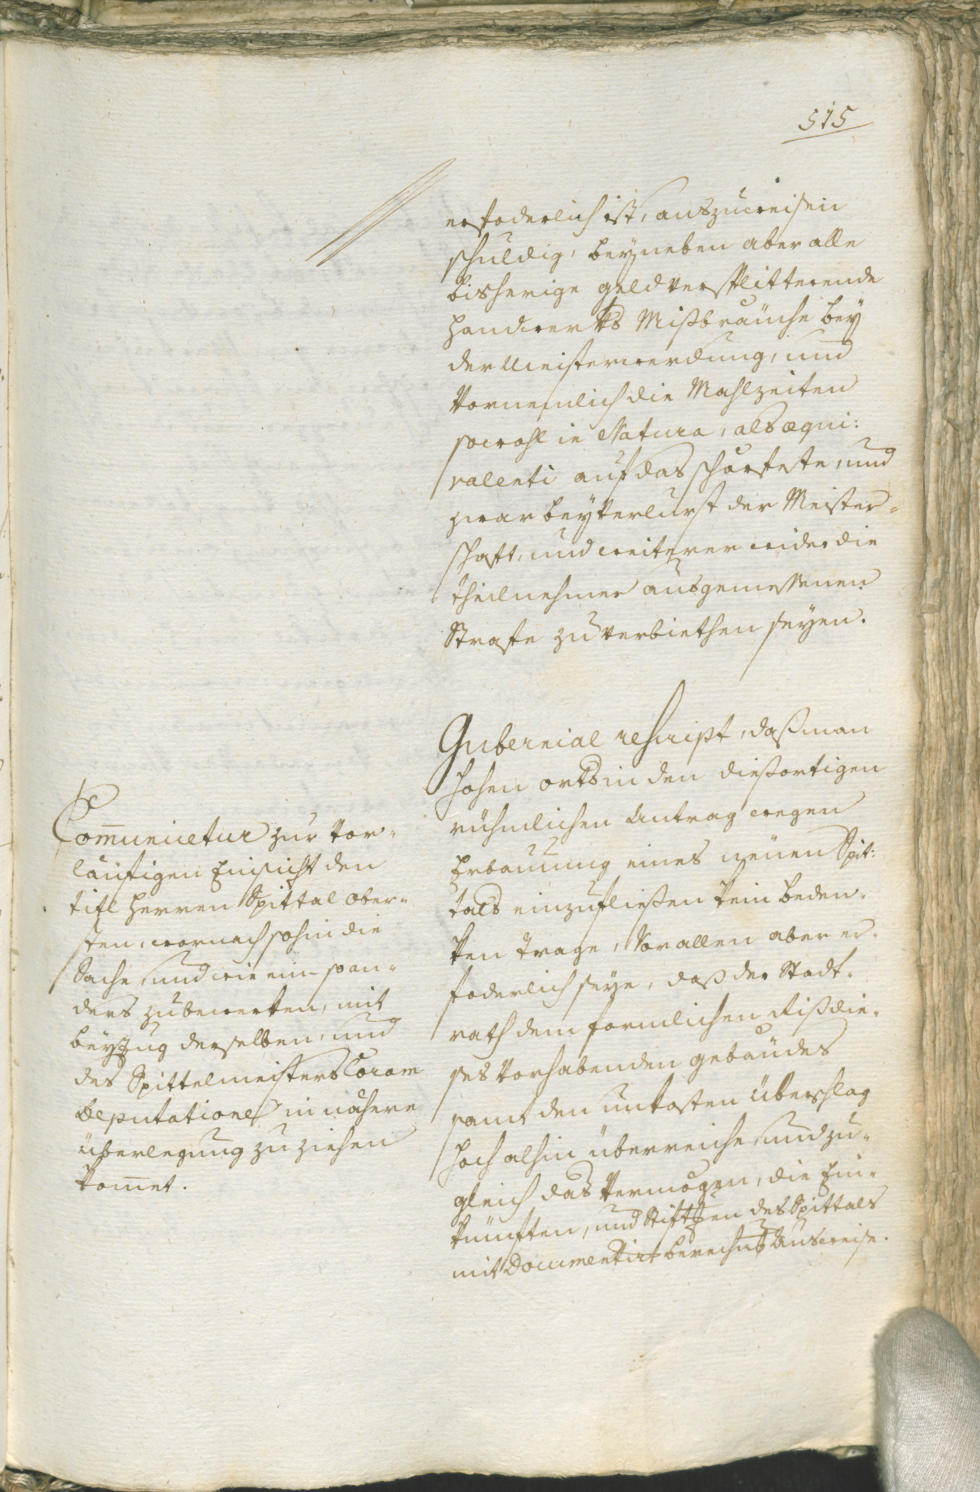 515
erfoderlich ist, auszuweisen
schuldig, beyneben aber alle
bisherige geld versplitterende
Handwerks Mißbräuche bey
der Meisterwerdung, und
vornemlich die Mahlzeiten
sowohl in Natura, als æqui:
valenti auf das schärfeste, und
zwar bey verlurst der Meister=
schaft, und weiterer wider die
theilnehmer ausgemessenen
Strafe zu verbiethen seyen.
Gubernial rescript, daß man
hohen orts in den dießortigen
rühmlichen Antrag wegen
Erbauung eines neuen Spit:
tals einzufließen kein beden=
ken trage, Vor allen aber er=
foderlich seye, daß der Stadt=
rath dem formlichen Riß die=
ses vorhabenden gebäudes
samt den unkosten überschlag
hoch alhin überreiche, und zu=
gleich das vermögen, die Ein=
künften, und Stiftgen des Spittals
mit Documentirt berechng Ausweise.
Com̅unicetur zur vor=
läufigen Einsicht den
titl Herren Spittal ober=
sten, wornach sohin die
Sache, und wie ein- so an=
ders zubewerken, mit
beyzug derselben, und
des Spittelmeisters Coram
Deputatione in nähere
überlegung zu ziehen
kom̅et.